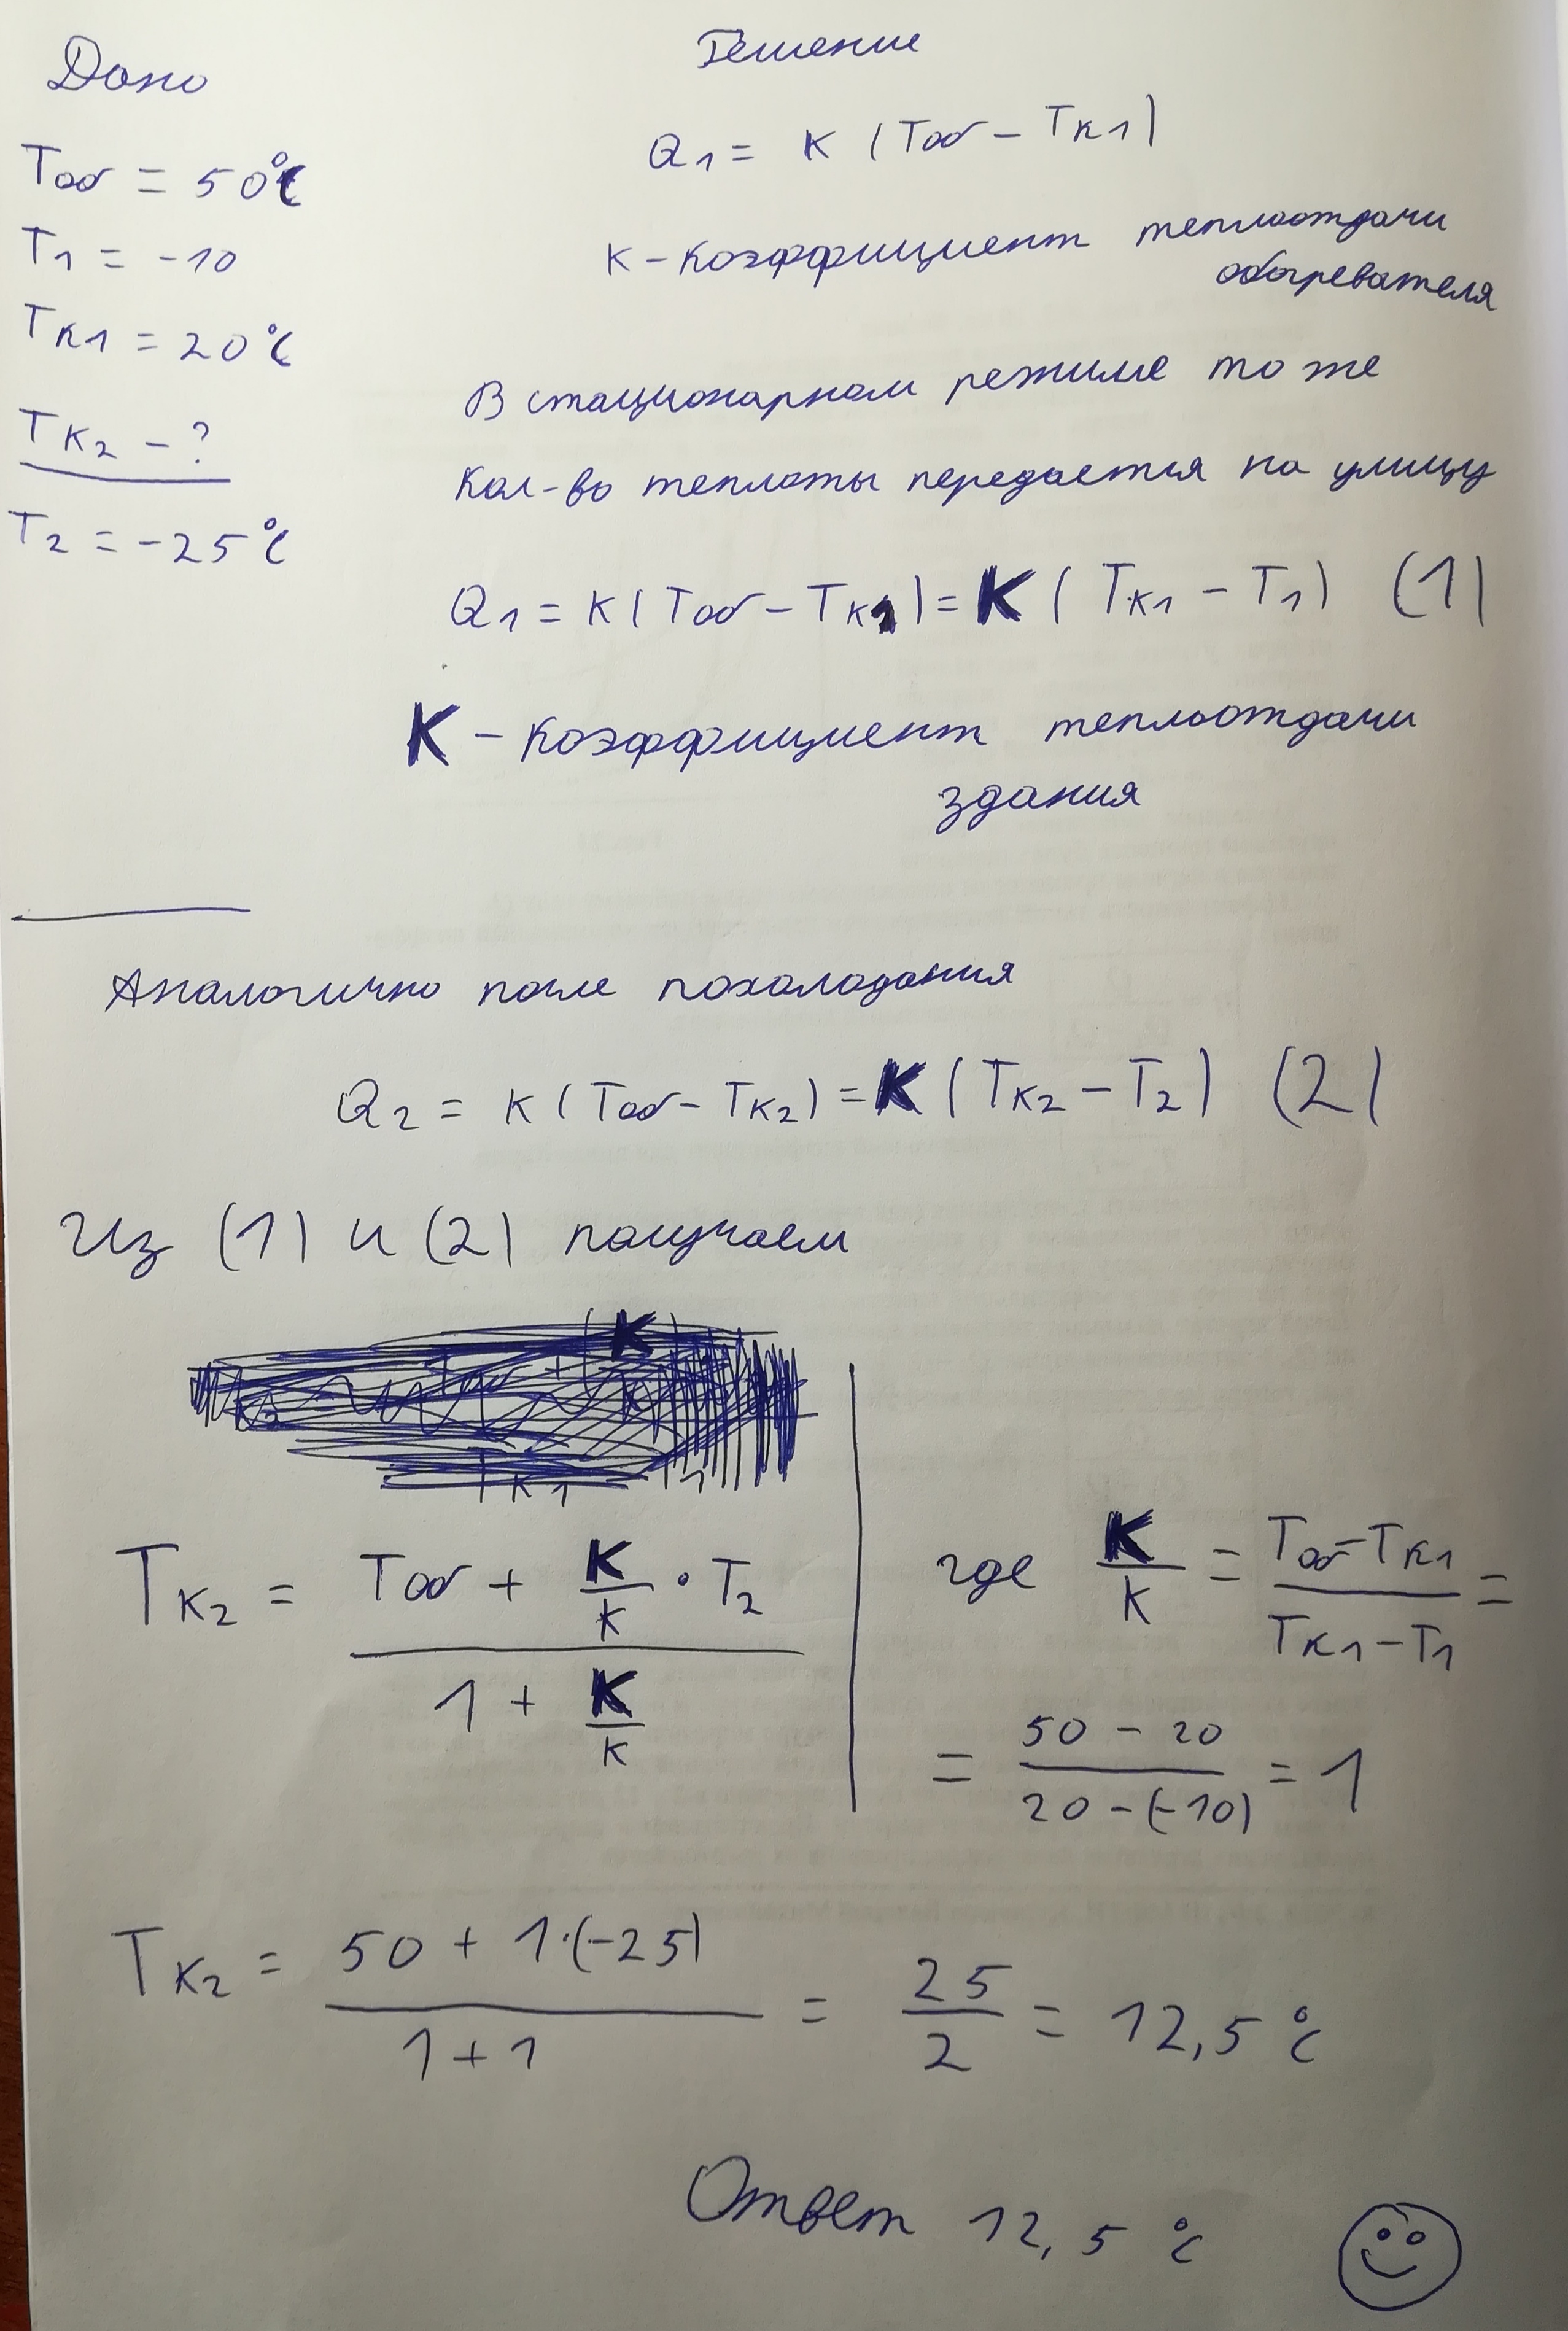 Дано
Tоб = 50°C
T1 = -10
Tк1 = 20°C
Tк2 - ?
T2 = -25°C
Решение
Q1 = к (Tоб - Tк1)
к - коэффициент теплоотдачи
обогревателя
В стационарном режиме то же
кол-во теплоты передается на улицу
Q1 = к (Tоб - Tк1) = K (Tк1 - T1) (1)
K - коэффициент теплоотдачи
здания
Аналогично после похолодания
Q2 = к (Tоб - Tк2) = K (Tк2 - T2) (2)
Из (1) и (2) получаем
Tк2 = (Tоб + K/к · T2) / (1 + K/к)
где K/к = (Tоб - Tк1) / (Tк1 - T1) =
= (50 - 20) / (20 - (-10)) = 1
Tк2 = (50 + 1·(-25)) / (1 + 1) = 25/2 = 12,5 °C
Ответ 12,5 °C